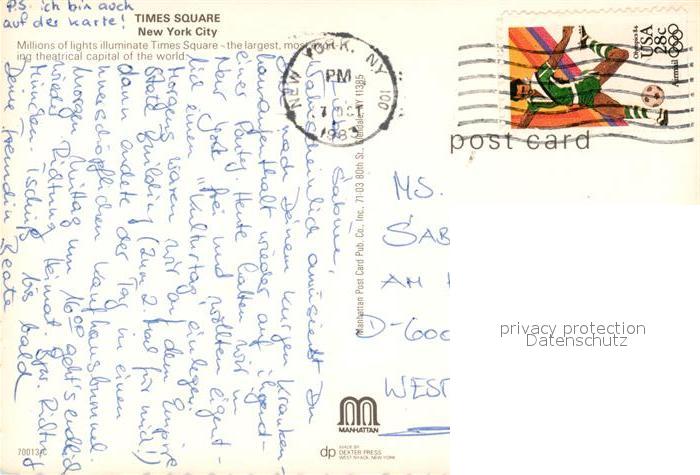 P.S. ich bin auch
auf der Karte!
TIMES SQUARE
New York City
Millions of lights illuminate Times Square - the largest, most
ing theatrical capital of the world.
NEW YORK, NY 001
PM
1983
Olympics 84
USA
28c
Airmail
post card
Sabine,
Wahrscheinlich amüsierst Du
nach Deinem kurzen Kranken-
hausaufenthalt wieder auf irgend-
einer Party. Heute hatten wir in
New York frei und wollten eigent-
lich einen "Kulturtag" einlegen.
Morgens waren wir auf dem Empire
State Building (zum 2. Mal für mich!)
dann endete der Tag in einem
unerschöpflichen Kaufhausbummel.
Morgen Mittag um 16.00 geht's endlich
wieder Richtung Heimat bzw. Richtung
München. Tschüß bis bald
Deine Freundin Beate
Manhattan Post Card Pub. Co., Inc., 71-03 80th St., Glendale, NY 11385
MS.
SAB
AM
D-600
WEST
privacy protection
Datenschutz
MANHATTAN
dp
MADE BY
DEXTER PRESS
WEST NYACK, NEW YORK
70013-C